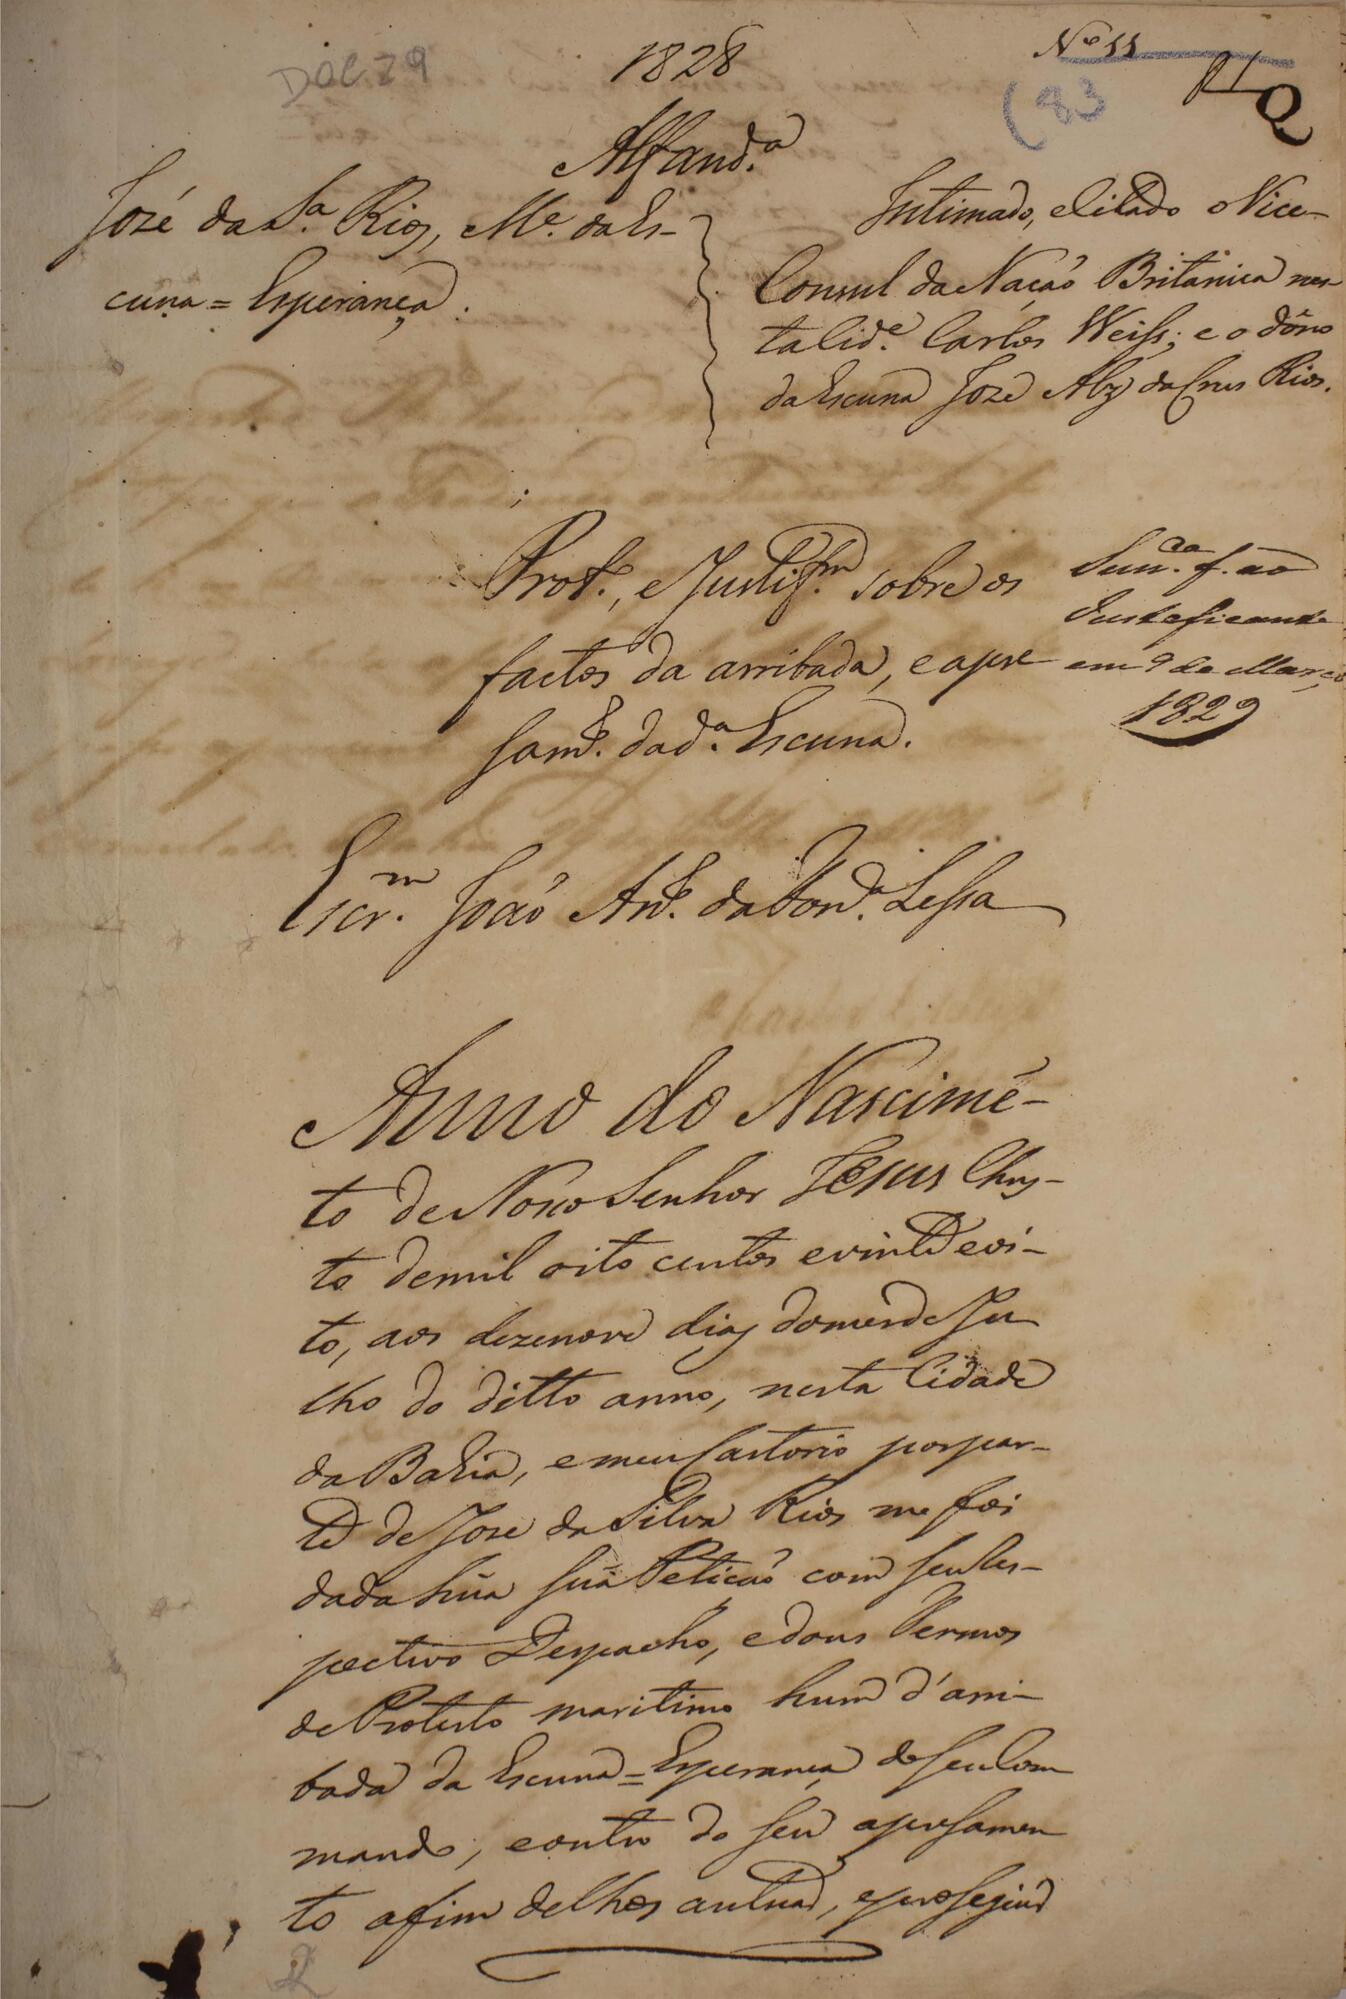 DOC 79
1828
Nº 11
(83
Alfand.ª
Jozé da S.ª Rios, M.e da Es-
cuna = Esperança.
Intimado, e Citado o Vice-
Consul da Nação Britanica nes-
ta Cid.e Carlos Weiss; e o dôno
da Escuna Jozé Alz da Crus Rios.
Prot.o, e Justif.m sobre os
factos da arribada, e apre
sam.to da d.ª Escuna.
f. ao
Justeficante
em 9 de Março
1829
Escr.m João Ant.o da Fon.ca Lessa
Anno do Nascimē-
to de Nosso Senhor Jesus Chris-
to de mil oito centos e vinte e oi-
to, aos dezenove dias do mes de Ju
lho do ditto anno, nesta Cidade
da Bahia, e meu Cartorio por par-
te de Jose da Silva Rios me foi
dada hũa sua Petição com seu Res-
pectivo Despacho, e dous Termos
de Protesto maritimo hum d'arri-
bada da Escuna = Esperança do seu Com
mando, e outro do seu apresamen
to afim de lhos autuar, e proseguir
2